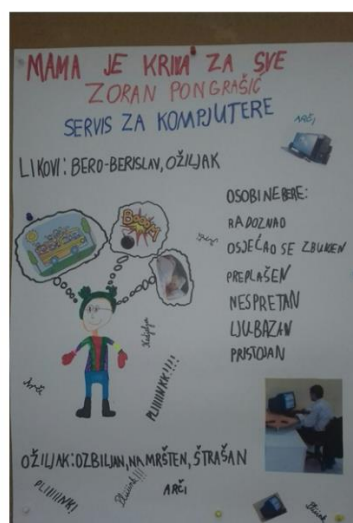 MAMA JE KRIVA ZA SVE
ZORAN PONGRAŠIĆ
SERVIS ZA KOMPJUTERE
ARČI
LIKOVI: BERO-BERISLAV, OŽILJAK
OSOBINE BERE:
RADOZNAO
OSJEĆAO SE ZBUNJEN
PREPLAŠEN
NESPRETAN
LJUBAZAN
PRISTOJAN
Arči
PLIIIINKK!!!!
OŽILJAK: OZBILJAN, NAMRŠTEN, ŠTRAŠAN
PLIIIIINK!
ARČI